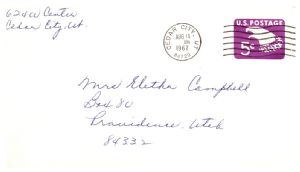 Center
Cedar City, Ut.
CEDAR CITY, UT
AUG 18
PM
1967
84720
U.S. POSTAGE
5¢
Mrs Eletha Campbell
Box 80
Providence, Utah
84332